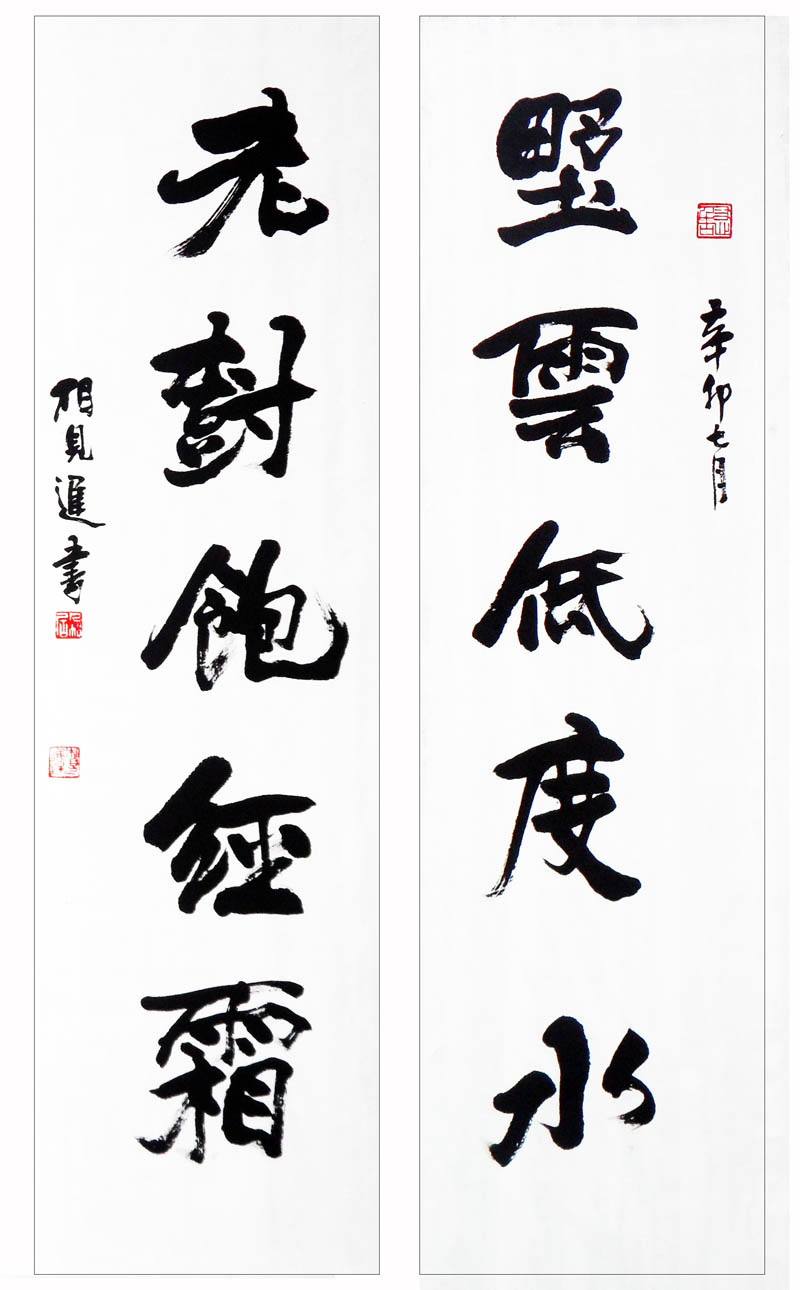 辛卯七月
野雲低度水
老樹飽經霜
相見進書